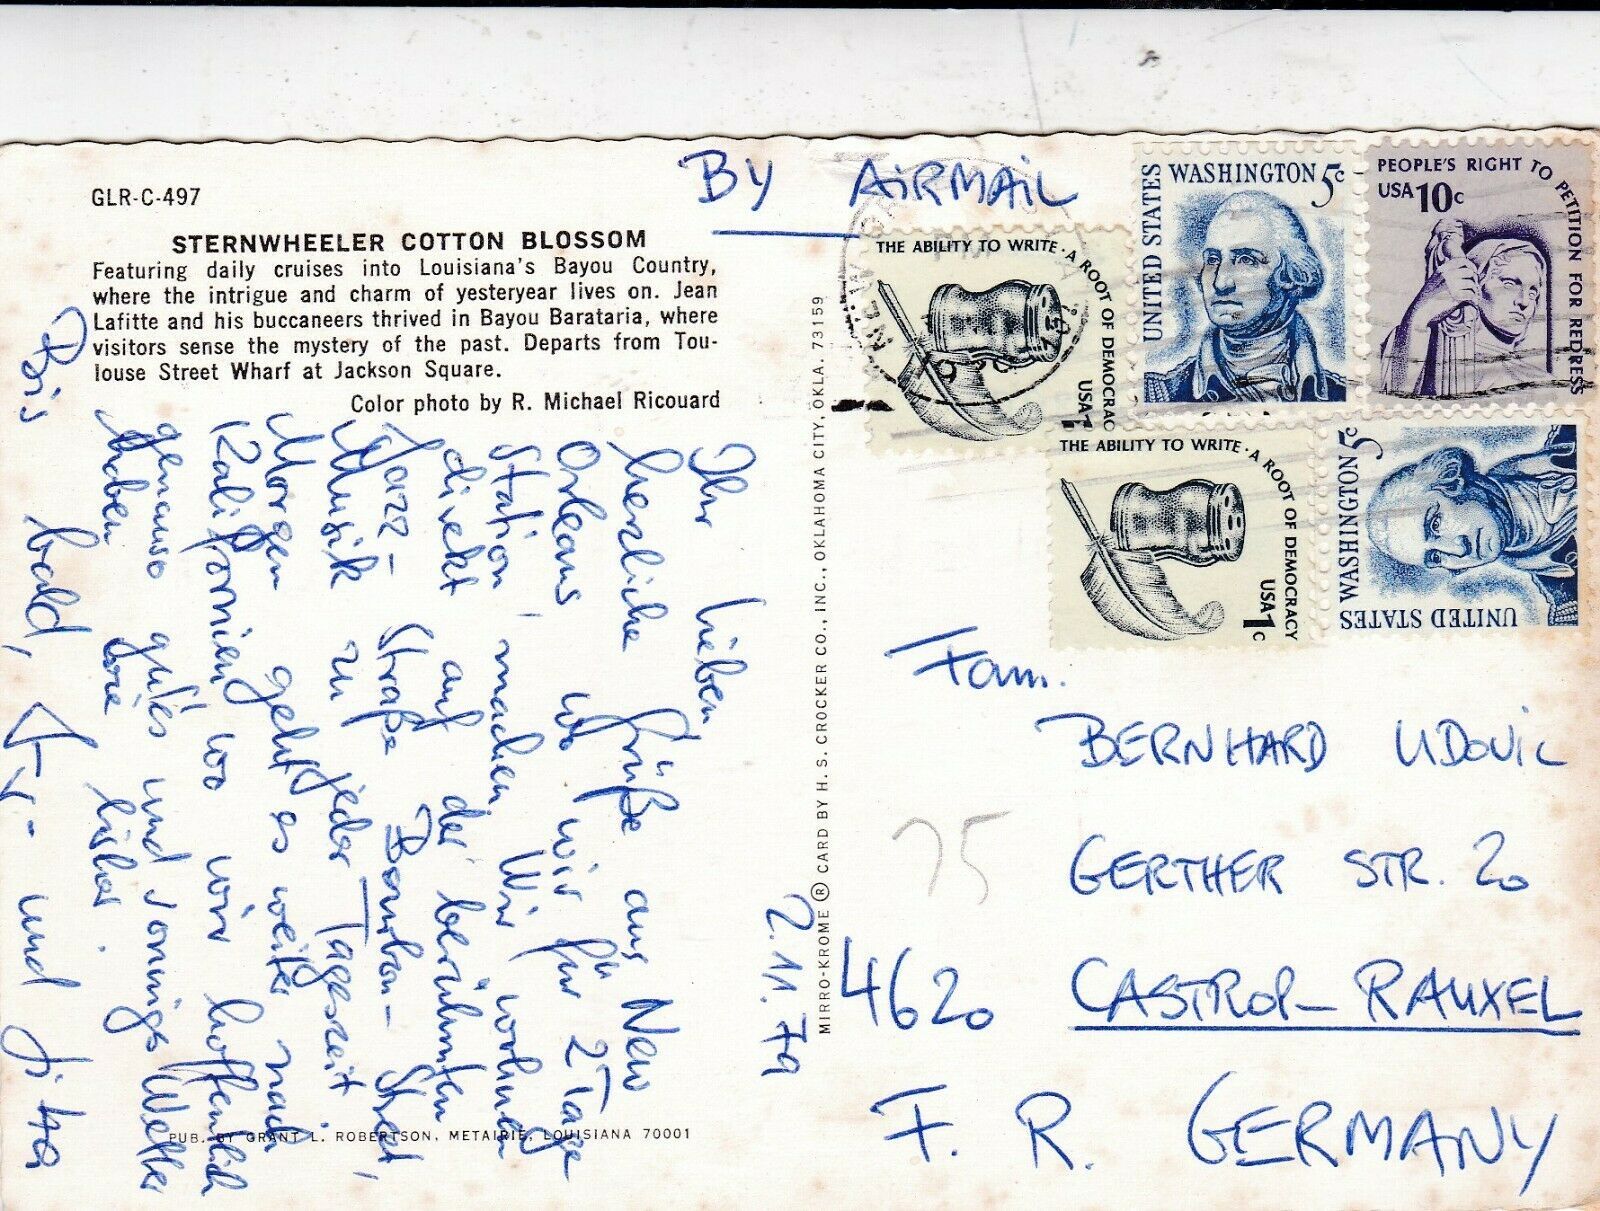 GLR-C-497
STERNWHEELER COTTON BLOSSOM
Featuring daily cruises into Louisiana's Bayou Country,
where the intrigue and charm of yesteryear lives on. Jean
Lafitte and his buccaneers thrived in Bayou Barataria, where
visitors sense the mystery of the past. Departs from Tou-
louse Street Wharf at Jackson Square.
Color photo by R. Michael Ricouard
2.11.79
Ihr Lieben
herzliche Grüße aus New
Orleans wo wir für 2 Tage
Station machen. Wir wohnen
direkt auf der berühmten
Jazz-Straße Bourbon-Street,
Musik zu jeder Tageszeit!
Morgen geht es weiter nach
Kalifornien wo wir hoffentlich
genauso gutes und sonniges Wetter
haben wie bisher.
Bis bald, und
PUB. BY GRANT L. ROBERTSON, METAIRIE, LOUISIANA 70001
MIRRO-KROME ® CARD BY H. S. CROCKER CO., INC., OKLAHOMA CITY, OKLA. 73159
BY AIRMAIL
NEW
PM
THE ABILITY TO WRITE · A ROOT OF DEMOCRAC
USA 1
UNITED STATES
WASHINGTON 5c
PEOPLE'S RIGHT TO PETITION FOR REDRESS
USA 10c
THE ABILITY TO WRITE · A ROOT OF DEMOCRACY
USA 1c
WASHINGTON 5c
UNITED STATES
Fam.
BERNHARD UDOVIC
75
GERTHER STR. 20
4620 CASTROP-RAUXEL
F. R. GERMANY